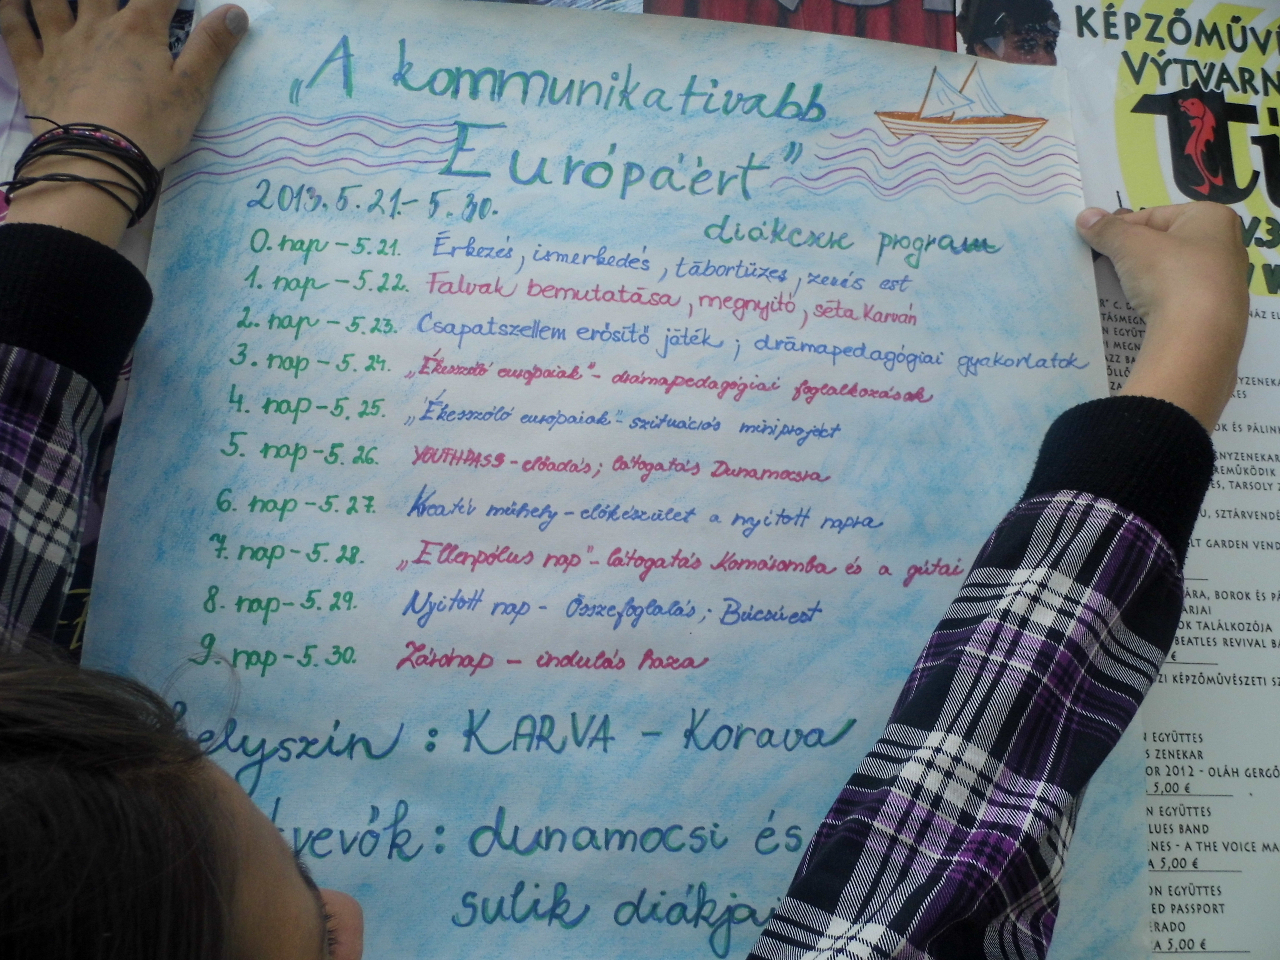 „A kommunikativabb
Európáért”
2013. 5. 21.- 5. 30.
diákcsere program
0. nap - 5.21. Érkezés, ismerkedés, tábortüzes, zenés est
1. nap - 5.22. Falvak bemutatása, megnyitó, séta Karván
2. nap - 5.23. Csapatszellem erősítő játék; drámapedagógiai gyakorlatok
3. nap - 5.24. „Ékesszóló európaiak” - drámapedagógiai foglalkozások
4. nap - 5.25. „Ékesszóló európaiak” - szituációs miniprojekt
5. nap - 5.26. YOUTHPASS - előadás; látogatás Dunamocsra
6. nap - 5.27. Kreatív műhely - előkészület a nyitott napra
7. nap - 5.28. „Ellenpólus nap” - látogatás Komáromba és a gútai
8. nap - 5.29. Nyitott nap - Összefoglalás; Búcsúest
9. nap - 5.30. Zárónap - indulás haza
helyszín : KARVA - Korava
vevők : dunamocsi és
sulik diákjai
KÉPZŐMŰV
VÝTVARN
EGYÜTTES
S ZENEKAR
OR 2012 - OLÁH GERGŐ
5,00 €
EGYÜTTES
LUES BAND
NES - A THE VOICE MA
A 5,00 €
ON EGYÜTTES
ED PASSPORT
ERADO
A 5,00 €